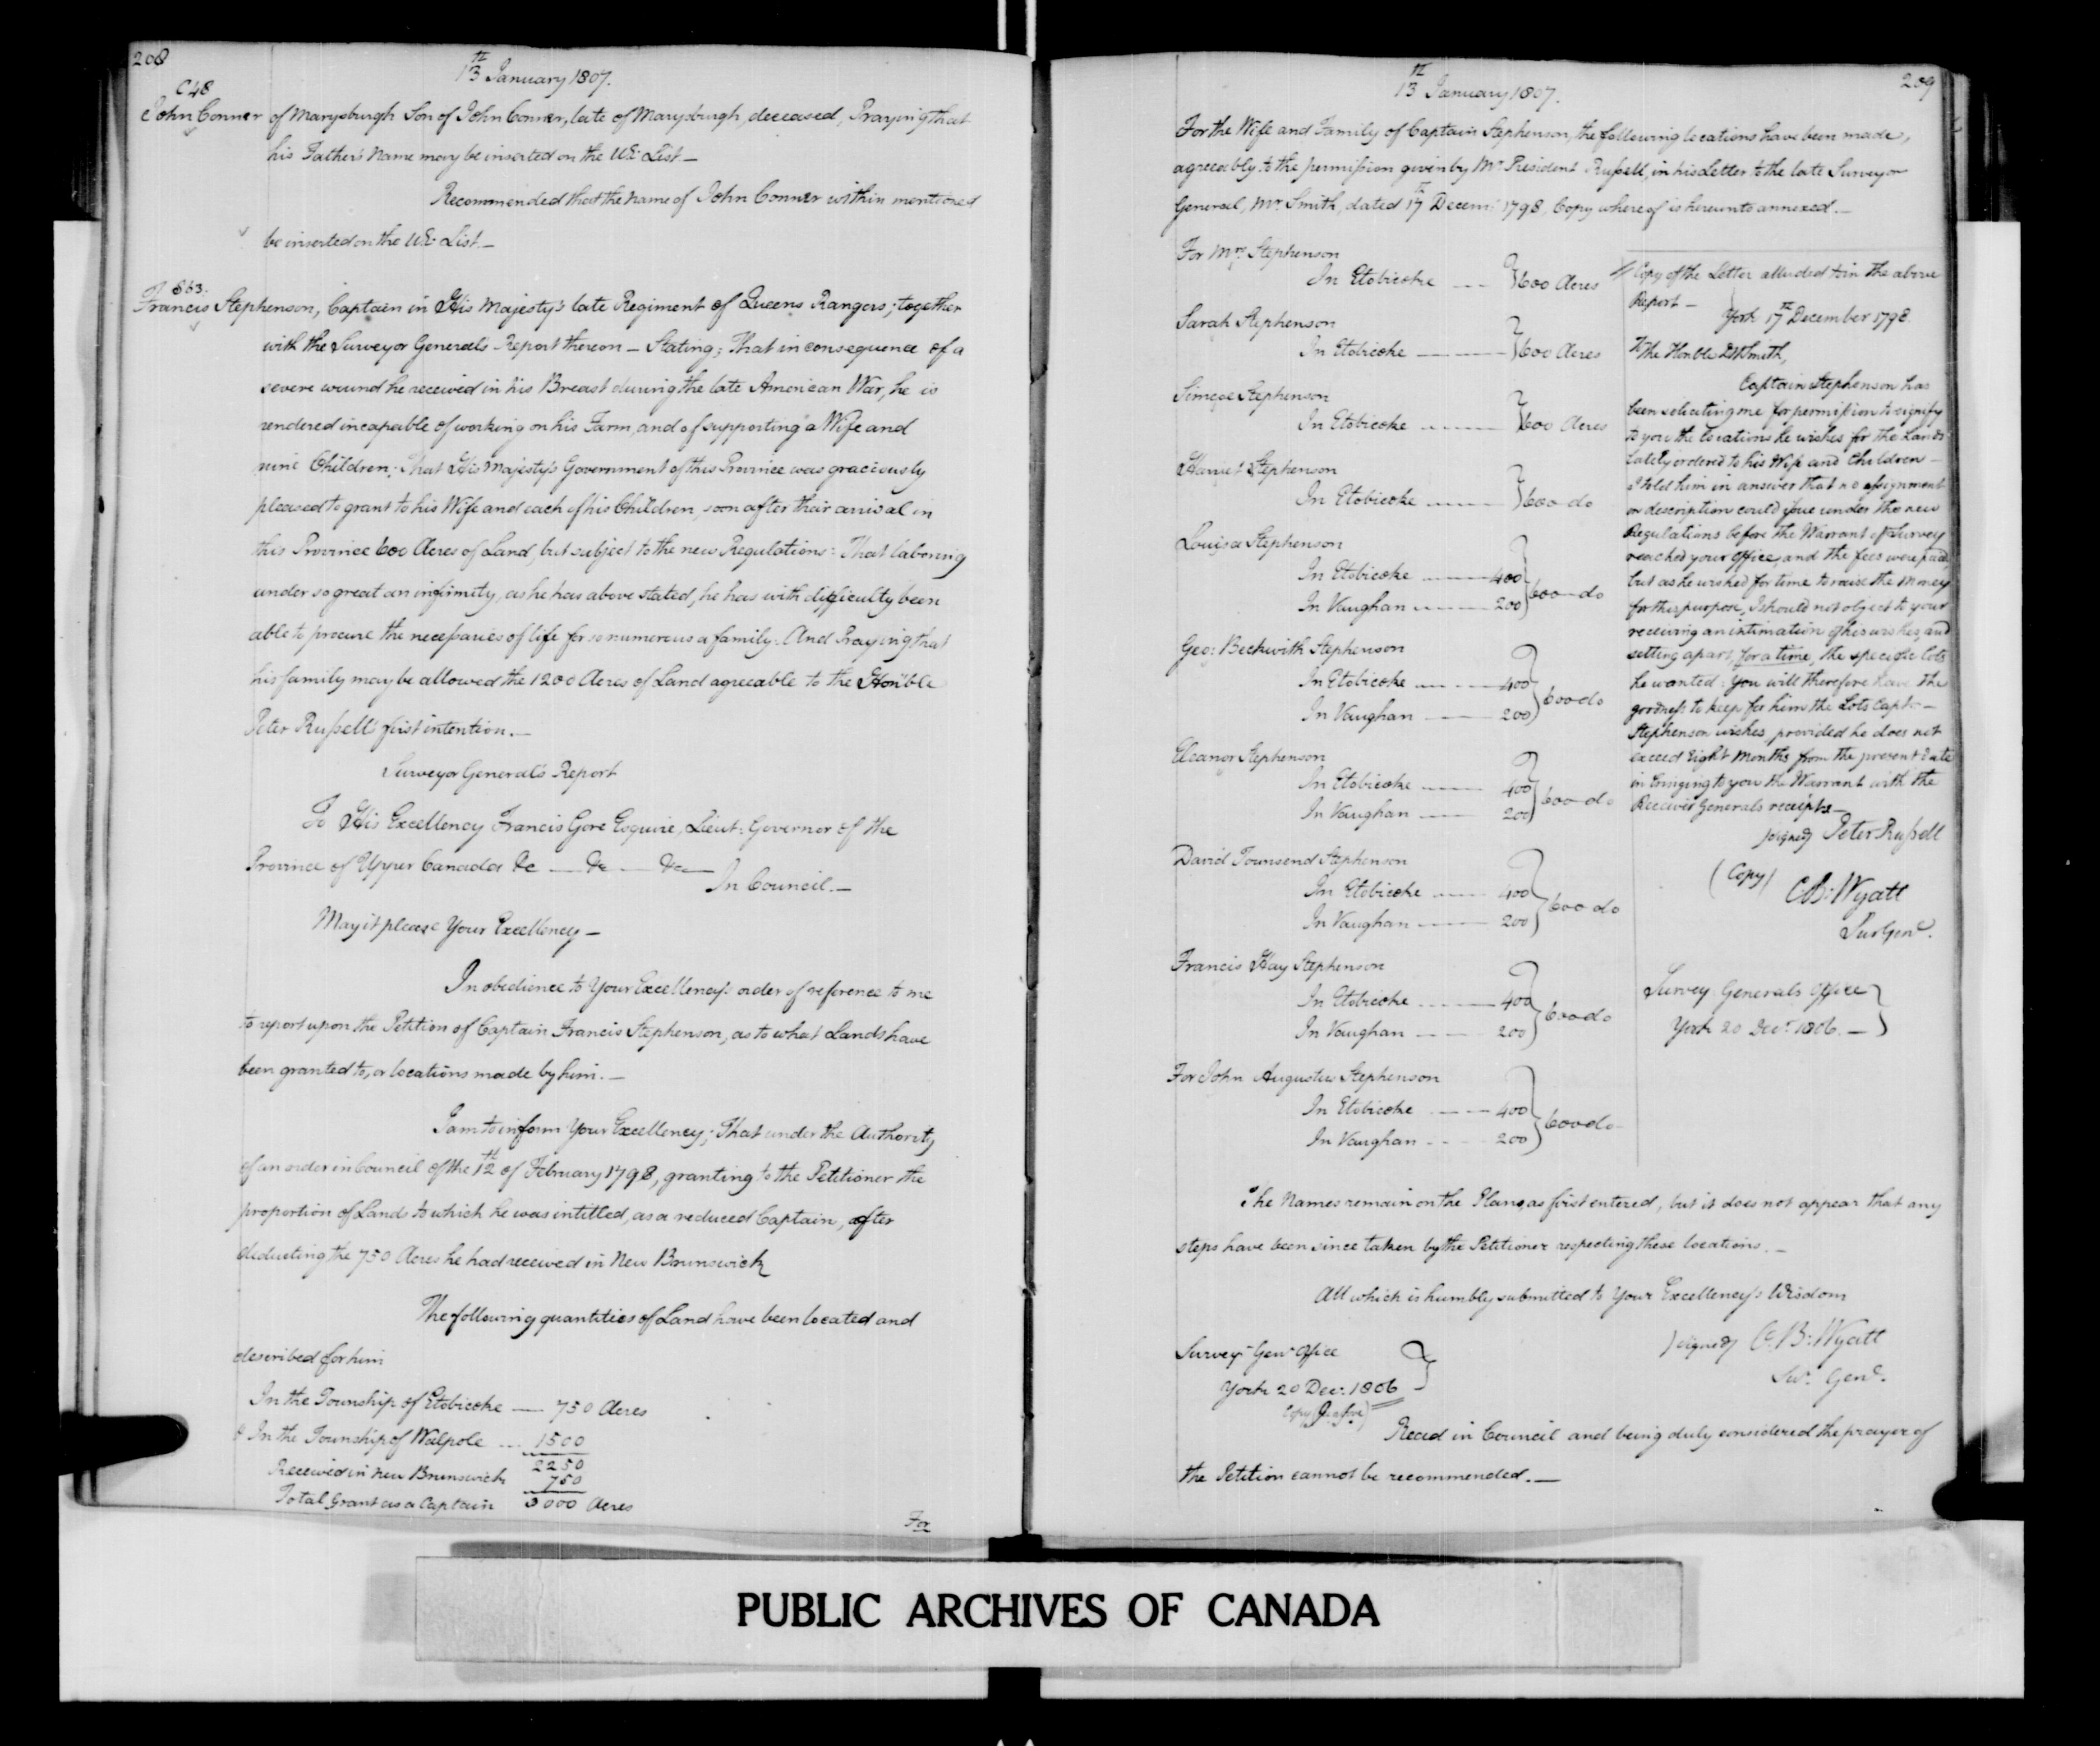 208
13th January 1807.
C48
John Conner of Marysburgh Son of John Conner, late of Marysburgh, deceased, Praying that
his Father's Name may be inserted on the UE: List.—
Recommended that the name of John Conner within mentioned
be inserted on the UE: List.—
S63.
Francis Stephenson, Captain in His Majesty's late Regiment of Queens Rangers; together
with the Surveyor General's Report thereon — Stating; That in consequence of a
severe wound he received in his Breast during the late American War, he is
rendered incapable of working on his Farm, and of supporting a Wife and
nine Children: That His Majesty's Government of this Province was graciously
pleased to grant to his Wife and each of his Children, soon after their arrival in
this Province 600 Acres of Land, but subject to the new Regulations: That laboring
under so great an infirmity, as he has above stated, he has with difficulty been
able to procure the necessaries of life for so numerous a family: And Praying that
his family may be allowed the 1200 Acres of Land agreeable to the Honble
Peter Russell's first intention.—
Surveyor General's Report
To His Excellency Francis Gore Esquire, Lieut: Governor of the
Province of Upper Canada &c — &c — &c —
In Council.—
May it please Your Excellency —
In obedience to Your Excellency's order of reference to me
to report upon the Petition of Captain Francis Stephenson, as to what Lands have
been granted to, or locations made by him.—
I am to inform Your Excellency; That under the Authority
of an order in Council of the 12th of February 1798, granting to the Petitioner the
proportion of Land to which he was intitled, as a reduced Captain, after
deducting the 750 Acres he had received in New Brunswick
The following quantities of Land have been located and
described for him
In the Township of Etobicoke — 750 Acres
In the Township of Walpole ... 1500
2250
Received in New Brunswick 750
Total Grant as a Captain 3000 Acres
For
13th January 1807.
209
For the Wife and Family of Captain Stephenson, the following locations have been made,
agreeably to the permission given by Mr President Russell, in his Letter to the late Surveyor
General, Mr Smith, dated 17th Decem: 1798, Copy whereof is hereunto annexed.—
For Mrs Stephenson
In Etobicoke ---- } 600 Acres
Sarah Stephenson
In Etobicoke ---- } 600 Acres
Simcoe Stephenson
In Etobicoke ---- } 600 Acres
Harriet Stephenson
In Etobicoke ---- } 600 do
Louisa Stephenson
In Etobicoke ---- 400
In Vaughan ---- 200 } 600 do
Geo: Beckwith Stephenson
In Etobicoke ---- 400
In Vaughan ---- 200 } 600 do
Eleanor Stephenson
In Etobicoke ---- 400
In Vaughan ---- 200 } 600 do
David Townsend Stephenson
In Etobicoke ---- 400
In Vaughan ---- 200 } 600 do
Francis Hay Stephenson
In Etobicoke ---- 400
In Vaughan ---- 200 } 600 do
For John Augustus Stephenson
In Etobicoke ---- 400
In Vaughan ---- 200 } 600 do
Copy of the Letter alluded to in the above
Report —
York 17th December 1798.
To The Honble DW Smith,
Captain Stephenson has
been soliciting me for permission to signify
to you the locations he wishes for the Lands
lately ordered to his Wife and Children —
I told him in answer that no assignment
or description could issue under the new
Regulations before the Warrant of Survey
reached your office, and the fees were paid,
but as he wished for time to raise the money
for this purpose, I should not object to your
receiving an intimation of his wishes, and
setting apart, for a time, the specific lots
he wanted. You will therefore have the
goodness to keep for him the Lots Capt:—
Stephenson wishes, provided he does not
exceed Eight Months from the present Date
in bringing to you the Warrant with the
Receiver Generals receipts —
(signed) Peter Russell
(Copy)
C.B: Wyatt
Sur Genl.
Survey: Generals Office
York 20 Decr. 1806.— }
The Names remain on the Plans, as first entered, but it does not appear that any
steps have been since taken by the Petitioner respecting these locations.—
All which is humbly submitted to Your Excellency's Wisdom
(signed) C.B: Wyatt
Sur. Genl.
Survey: Genl Office
York 20 Decr. 1806 }
Read in Council and being duly considered the prayer of
the Petition cannot be recommended.—
PUBLIC ARCHIVES OF CANADA